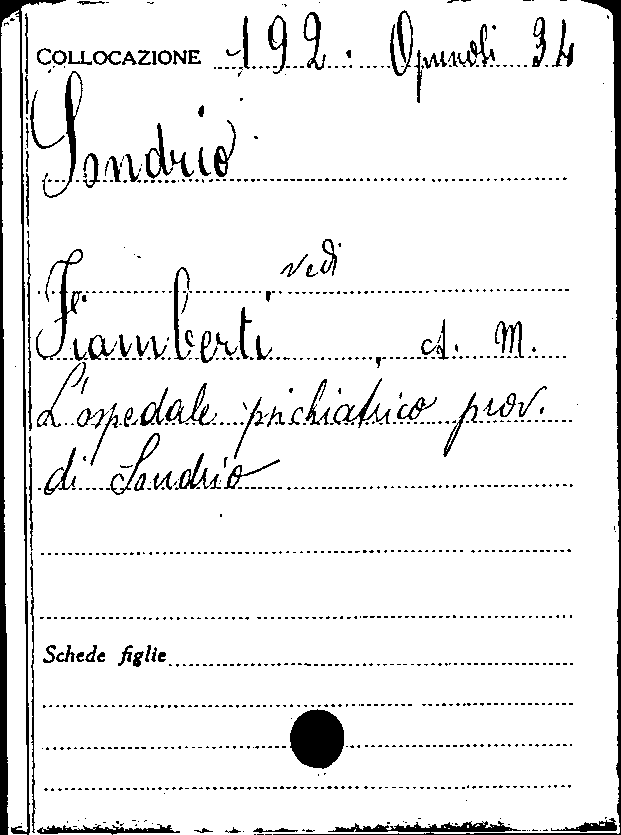 COLLOCAZIONE 192. Opuscoli 34
Sondrio
vedi
Fiamberti, A. M.
L'ospedale psichiatrico prov.
di Sondrio
Schede figlie